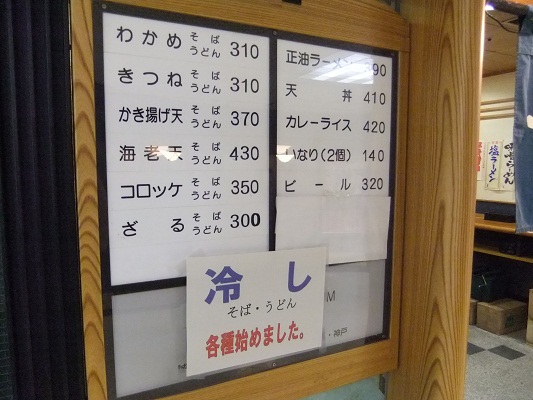 わかめ そば うどん 310
きつね そば うどん 310
かき揚げ天 そば うどん 370
海老天 そば うどん 430
コロッケ そば うどん 350
ざる そば うどん 300
正油ラーメン 390
天丼 410
カレーライス 420
いなり(2個) 140
ビール 320
冷し
そば・うどん
各種始めました。
M
・神戸
塩ラーメン